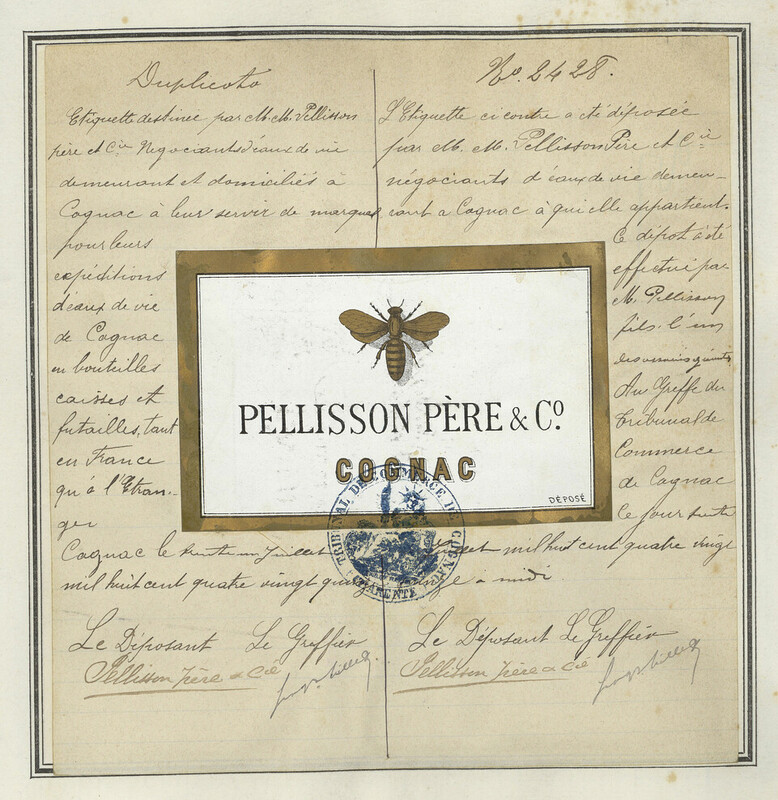 Duplicata
Etiquette destinée par M.M. Pellisson
père et Cie Negociants d'eaux de vie
demeurant et domiciliés à
Cognac à leur servir de marque
pour leurs
expéditions
d'eaux de vie
de Cognac
en bouteilles
caisses et
futailles, tant
en France
qu'à l'Etran-
ger
Cognac le trente un Juillet
mil huit cent quatre vingt quinze
Le Déposant Le Greffier
Pellisson Père & Cie
No. 2428.
L'Etiquette ci contre a été déposée
par M. M. Pellisson Père et Cie
négociants d'eaux de vie demeu-
rant a Cognac à qui elle appartient.
Ce dépot a été
effectué par
M. Pellisson
fils, l'un
Au Greffe du
Tribunal de
Commerce
de Cognac
Ce jour trente
Juillet mil huit cent quatre vingt
quinze à midi
Le Déposant Le Greffier
Pellisson Père & Cie
PELLISSON PÈRE & Cº
COGNAC
DÉPOSÉ
TRIBUNAL DE COMMERCE DE COGNAC
CHARENTE